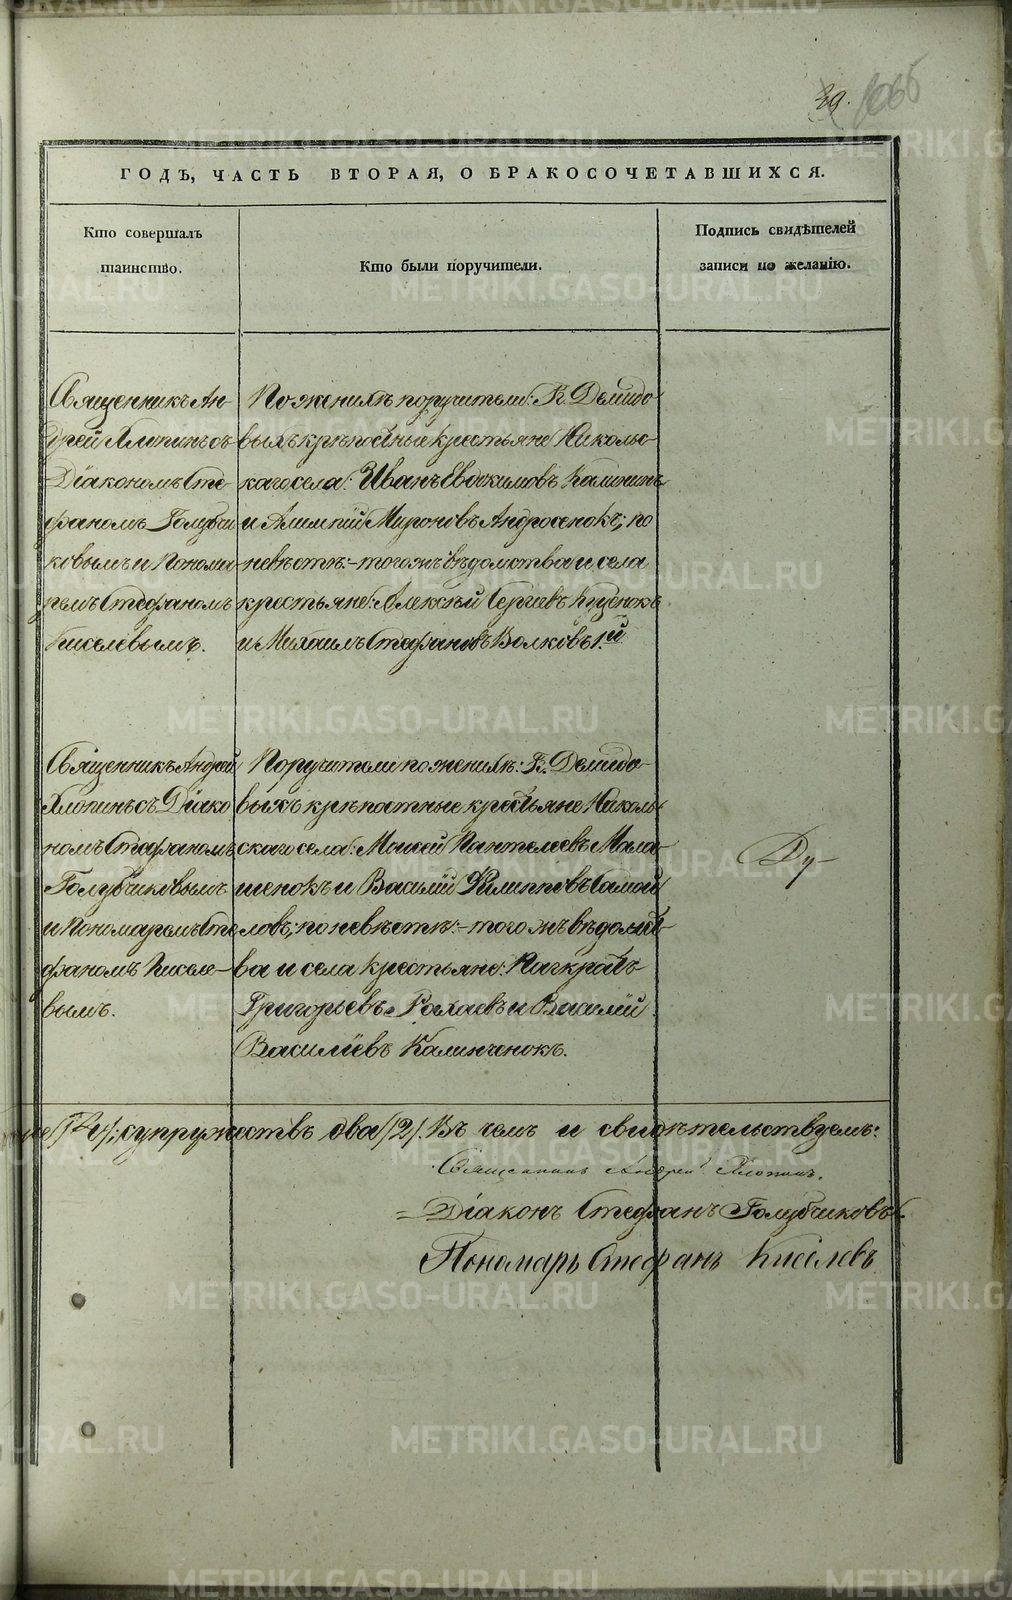 39.
ГОДЪ, ЧАСТЬ ВТОРАЯ, О БРАКОСОЧЕТАВШИХСЯ.
Кто совершалъ
таинство.
Кто были поручители.
Подпись свидѣтелей
записи по желанію.
Священникъ Ан-
дрей Хлопинъ съ
Діакономъ Сте-
фаномъ Голубчи
ковымъ и Понома-
ремъ Стефаномъ
Киселевымъ.
По женихѣ поручители: Г. Демидо-
выхъ крѣпостные крестьяне Николь-
скаго села: Иванъ Евдокимовъ Калининъ
и Алимпій Мироновъ Андросенокъ; по
невѣстѣ:- тогожъ вѣдомства и села
крестьяне: Алексѣй Сергѣевъ
и Михаилъ Стефановъ Волковъ
Священникъ Андрей
Хлопинъ съ Діако
номъ Стефаномъ
Голубчиковымъ
и Пономаремъ Сте
фаномъ Киселе-
вымъ.
Поручители по женихѣ: Г. Демидо-
выхъ крѣпостные крестьяне Николь-
скаго села: Моисей Пантелеевъ Мала-
шенокъ и Василій Филипповъ Самой-
ловъ; по невѣстѣ:- тогожъ вѣдомст-
ва и села крестьяне: Панкратъ
Григорьевъ и Василій
Василіевъ Калинченокъ.
супружествъ два /2/. Въ чемъ и свидѣтельствуемъ:
Священникъ Андрей Хлопинъ.
Діаконъ Стефанъ Голубчиковъ.
Пономарь Стефанъ Киселевъ
METRIKI.GASO-URAL.RU